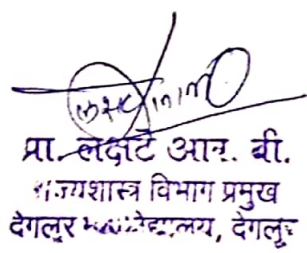 प्रा. लदाटे आर. बी.
राज्यशास्त्र विभाग प्रमुख
देगलूर महाविद्यालय, देगलूर